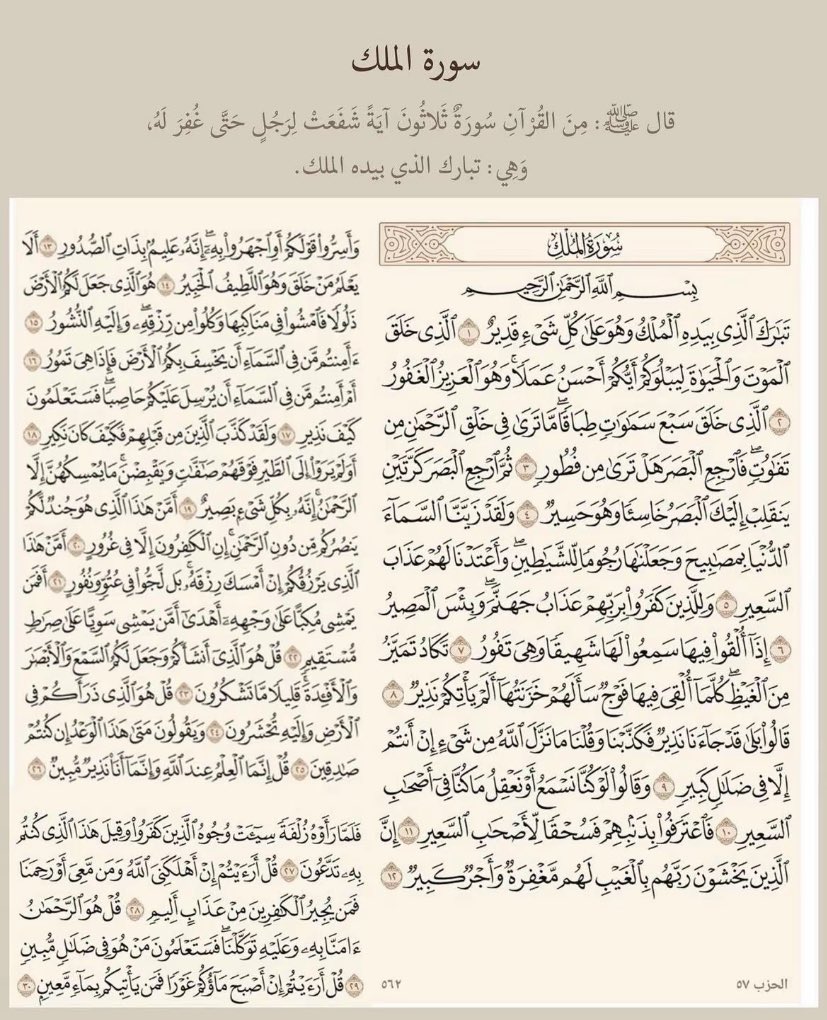 سورة الملك
قال ﷺ: مِنَ القُرْآنِ سُورَةٌ ثَلاثُونَ آيَةً شَفَعَتْ لِرَجُلٍ حَتَّى غُفِرَ لَهُ،
وَهِي: تبارك الذي بيده الملك.
سُورَةُ المُلْكِ
بِسْمِ اللَّهِ الرَّحْمَٰنِ الرَّحِيمِ
تَبَٰرَكَ الَّذِي بِيَدِهِ الْمُلْكُ وَهُوَ عَلَىٰ كُلِّ شَيْءٍ قَدِيرٌ ١ الَّذِي خَلَقَ
الْمَوْتَ وَالْحَيَوٰةَ لِيَبْلُوَكُمْ أَيُّكُمْ أَحْسَنُ عَمَلًا ۚ وَهُوَ الْعَزِيزُ الْغَفُورُ
٢ الَّذِي خَلَقَ سَبْعَ سَمَٰوَٰتٍ طِبَاقًا ۖ مَّا تَرَىٰ فِي خَلْقِ الرَّحْمَٰنِ مِن
تَفَٰوُتٍ ۖ فَارْجِعِ الْبَصَرَ هَلْ تَرَىٰ مِن فُطُورٍ ٣ ثُمَّ ارْجِعِ الْبَصَرَ كَرَّتَيْنِ
يَنقَلِبْ إِلَيْكَ الْبَصَرُ خَاسِئًا وَهُوَ حَسِيرٌ ٤ وَلَقَدْ زَيَّنَّا السَّمَاءَ
الدُّنْيَا بِمَصَٰبِيحَ وَجَعَلْنَٰهَا رُجُومًا لِّلشَّيَٰطِينِ ۖ وَأَعْتَدْنَا لَهُمْ عَذَابَ
السَّعِيرِ ٥ وَلِلَّذِينَ كَفَرُوا بِرَبِّهِمْ عَذَابُ جَهَنَّمَ ۖ وَبِئْسَ الْمَصِيرُ
٦ إِذَا أُلْقُوا فِيهَا سَمِعُوا لَهَا شَهِيقًا وَهِيَ تَفُورُ ٧ تَكَادُ تَمَيَّزُ
مِنَ الْغَيْظِ ۖ كُلَّمَا أُلْقِيَ فِيهَا فَوْجٌ سَأَلَهُمْ خَزَنَتُهَا أَلَمْ يَأْتِكُمْ نَذِيرٌ ٨
قَالُوا بَلَىٰ قَدْ جَاءَنَا نَذِيرٌ فَكَذَّبْنَا وَقُلْنَا مَا نَزَّلَ اللَّهُ مِن شَيْءٍ إِنْ أَنتُمْ
إِلَّا فِي ضَلَٰلٍ كَبِيرٍ ٩ وَقَالُوا لَوْ كُنَّا نَسْمَعُ أَوْ نَعْقِلُ مَا كُنَّا فِي أَصْحَٰبِ
السَّعِيرِ ١٠ فَاعْتَرَفُوا بِذَنبِهِمْ فَسُحْقًا لِّأَصْحَٰبِ السَّعِيرِ ١١ إِنَّ
الَّذِينَ يَخْشَوْنَ رَبَّهُم بِالْغَيْبِ لَهُم مَّغْفِرَةٌ وَأَجْرٌ كَبِيرٌ ١٢
الحزب ٥٧
٥٦٢
وَأَسِرُّوا قَوْلَكُمْ أَوِ اجْهَرُوا بِهِ ۖ إِنَّهُ عَلِيمٌ بِذَاتِ الصُّدُورِ ١٣ أَلَا
يَعْلَمُ مَنْ خَلَقَ وَهُوَ اللَّطِيفُ الْخَبِيرُ ١٤ هُوَ الَّذِي جَعَلَ لَكُمُ الْأَرْضَ
ذَلُولًا فَامْشُوا فِي مَنَاكِبِهَا وَكُلُوا مِن رِّزْقِهِ ۖ وَإِلَيْهِ النُّشُورُ ١٥
ءَأَمِنتُم مَّن فِي السَّمَاءِ أَن يَخْسِفَ بِكُمُ الْأَرْضَ فَإِذَا هِيَ تَمُورُ ١٦
أَمْ أَمِنتُم مَّن فِي السَّمَاءِ أَن يُرْسِلَ عَلَيْكُمْ حَاصِبًا ۖ فَسَتَعْلَمُونَ
كَيْفَ نَذِيرِ ١٧ وَلَقَدْ كَذَّبَ الَّذِينَ مِن قَبْلِهِمْ فَكَيْفَ كَانَ نَكِيرِ ١٨
أَوَلَمْ يَرَوْا إِلَى الطَّيْرِ فَوْقَهُمْ صَٰفَّٰتٍ وَيَقْبِضْنَ ۚ مَا يُمْسِكُهُنَّ إِلَّا
الرَّحْمَٰنُ ۚ إِنَّهُ بِكُلِّ شَيْءٍ بَصِيرٌ ١٩ أَمَّنْ هَٰذَا الَّذِي هُوَ جُندٌ لَّكُمْ
يَنصُرُكُم مِّن دُونِ الرَّحْمَٰنِ ۚ إِنِ الْكَٰفِرُونَ إِلَّا فِي غُرُورٍ ٢٠ أَمَّنْ هَٰذَا
الَّذِي يَرْزُقُكُمْ إِنْ أَمْسَكَ رِزْقَهُ ۚ بَل لَّجُّوا فِي عُتُوٍّ وَنُفُورٍ ٢١ أَفَمَن
يَمْشِي مُكِبًّا عَلَىٰ وَجْهِهِ أَهْدَىٰ أَمَّن يَمْشِي سَوِيًّا عَلَىٰ صِرَٰطٍ
مُّسْتَقِيمٍ ٢٢ قُلْ هُوَ الَّذِي أَنشَأَكُمْ وَجَعَلَ لَكُمُ السَّمْعَ وَالْأَبْصَٰرَ
وَالْأَفْـِٔدَةَ ۖ قَلِيلًا مَّا تَشْكُرُونَ ٢٣ قُلْ هُوَ الَّذِي ذَرَأَكُمْ فِي
الْأَرْضِ وَإِلَيْهِ تُحْشَرُونَ ٢٤ وَيَقُولُونَ مَتَىٰ هَٰذَا الْوَعْدُ إِن كُنتُمْ
صَٰدِقِينَ ٢٥ قُلْ إِنَّمَا الْعِلْمُ عِندَ اللَّهِ وَإِنَّمَا أَنَا نَذِيرٌ مُّبِينٌ ٢٦
فَلَمَّا رَأَوْهُ زُلْفَةً سِيـَٔتْ وُجُوهُ الَّذِينَ كَفَرُوا وَقِيلَ هَٰذَا الَّذِي كُنتُم
بِهِ تَدَّعُونَ ٢٧ قُلْ أَرَءَيْتُمْ إِنْ أَهْلَكَنِيَ اللَّهُ وَمَن مَّعِيَ أَوْ رَحِمَنَا
فَمَن يُجِيرُ الْكَٰفِرِينَ مِنْ عَذَابٍ أَلِيمٍ ٢٨ قُلْ هُوَ الرَّحْمَٰنُ
ءَامَنَّا بِهِ وَعَلَيْهِ تَوَكَّلْنَا ۖ فَسَتَعْلَمُونَ مَنْ هُوَ فِي ضَلَٰلٍ مُّبِينٍ
٢٩ قُلْ أَرَءَيْتُمْ إِنْ أَصْبَحَ مَاؤُكُمْ غَوْرًا فَمَن يَأْتِيكُم بِمَاءٍ مَّعِينٍ ٣٠